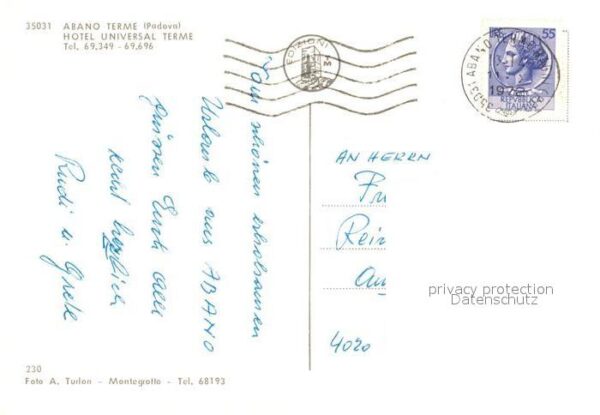 35031 ABANO TERME (Padova)
HOTEL UNIVERSAL TERME
Tel. 69.349 - 69.696
EDIZIONI
55
35031 ABANO TERME
1972
REPVBBLICA
ITALIANA
Vom schönen erholsamen
Urlaub aus ABANO
grüssen Euch allen
recht herzlich
Rudi u. Grete
AN HERRN
Fr
Rein
Au
4020
privacy protection
Datenschutz
230
Foto A. Turlon - Montegrotto - Tel. 68193